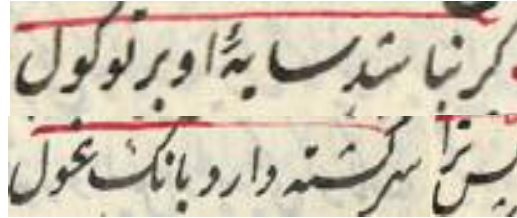 گر نباشد سایهٔ او بر تو گول
پس ترا سرگشته دارد بانگ غول